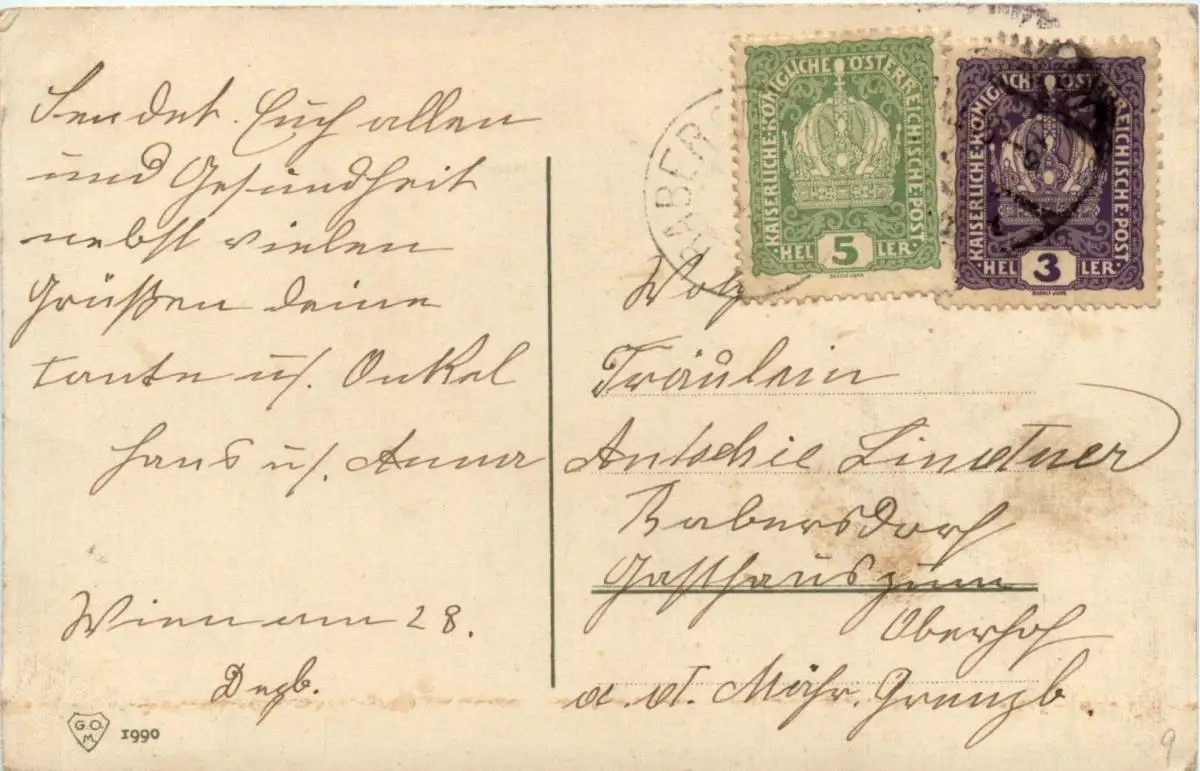 Sendet Euch allen
und Gesundheit
nebst vielen
Grüßen deine
Tante u/. Onkel
Hans u/. Anna
Wien am 28.
Dezb.
G.O.
M.
1990
KAISERLICHE·KÖNIGLICHE·ÖSTERREICHISCHE·POST
HELLER
5
KAISERLICHE·KÖNIGLICHE·ÖSTERREICHISCHE·POST
HELLER
3
Fräulein
Antschie Lindtner
Rabersdorf
Gasthaus zum
Oberhof
a. d. Mähr. Grenzb.
9